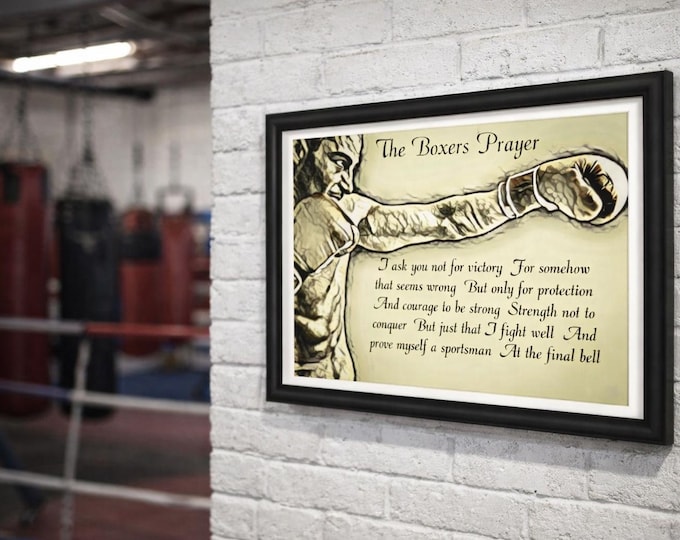 The Boxers Prayer
I ask you not for victory For somehow
that seems wrong But only for protection
And courage to be strong Strength not to
conquer But just that I fight well And
prove myself a sportsman At the final bell